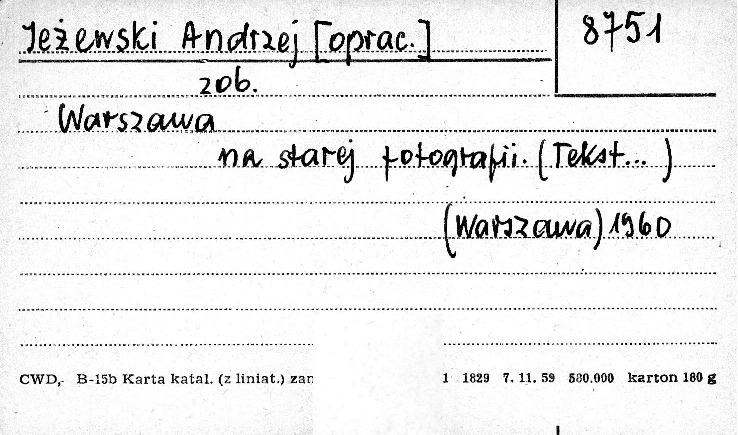 Jeżewski Andrzej [oprac.]
8751
zob.
Warszawa
na starej fotografii. (Tekst... )
(Warszawa) 1960
CWD,- B-15b Karta katal. (z liniat.) zam
1 1829 7. 11. 59 580.000 karton 180 g